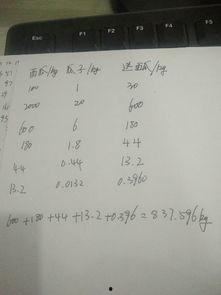 Esc F1 F2 F3 F4 F5
西瓜/kg 瓜子/kg 送西瓜/kg
100 1 30
2000 20 600
600 6 180
180 1.8 44
44 0.44 13.2
13.2 0.0132 0.3960
600+180+44+13.2+0.396=837.596kg